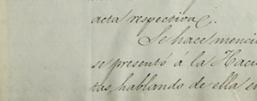 acta respectiva.
Se hace menci
se presentó á la Haci
tas, hablando de ella e